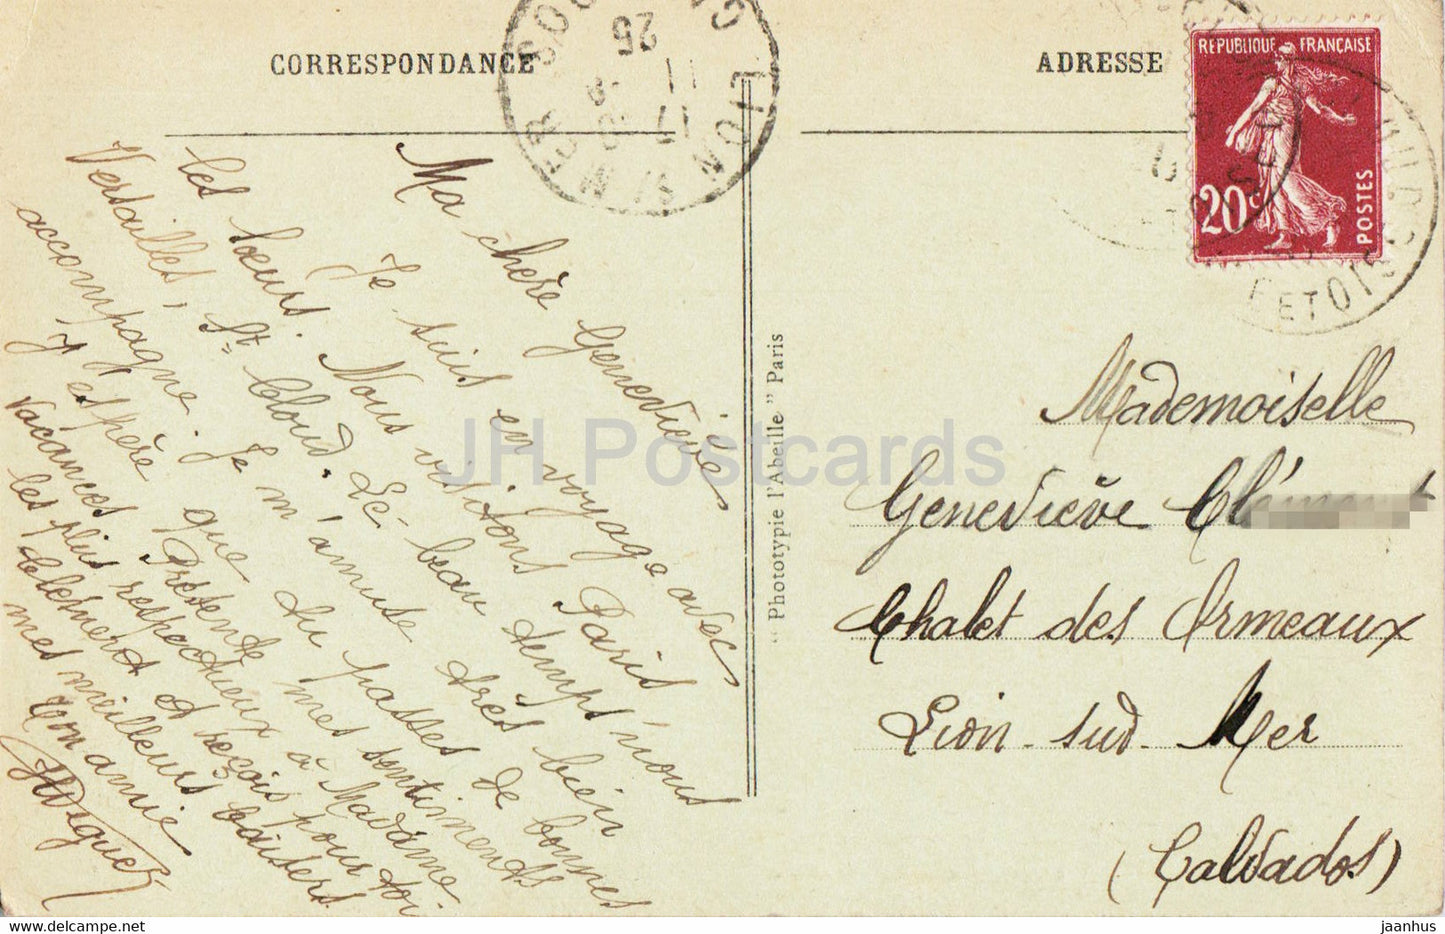 CORRESPONDANCE
ADRESSE
LION S/MER
17
11
25
REPUBLIQUE FRANÇAISE
20c
POSTES
ET OISE
Ma chère Geneviève
Je suis en voyage avec
les soeurs. Nous visitons Paris
Versailles, St Cloud. Le beau temps nous
accompagne. Je m'amuse très bien
J'espère que tu passes de bonnes
vacances Présente mes sentiments
les plus respectueux à Madame
Clément et reçois pour toi
mes meilleurs baisers
Ton amie
"Phototypie l'Abeille" Paris
Mademoiselle
Geneviève Clément
Chalet des Ormeaux
Lion-sur-Mer
(Calvados)
JH Postcards
www.hippostcard.com
jaanhus